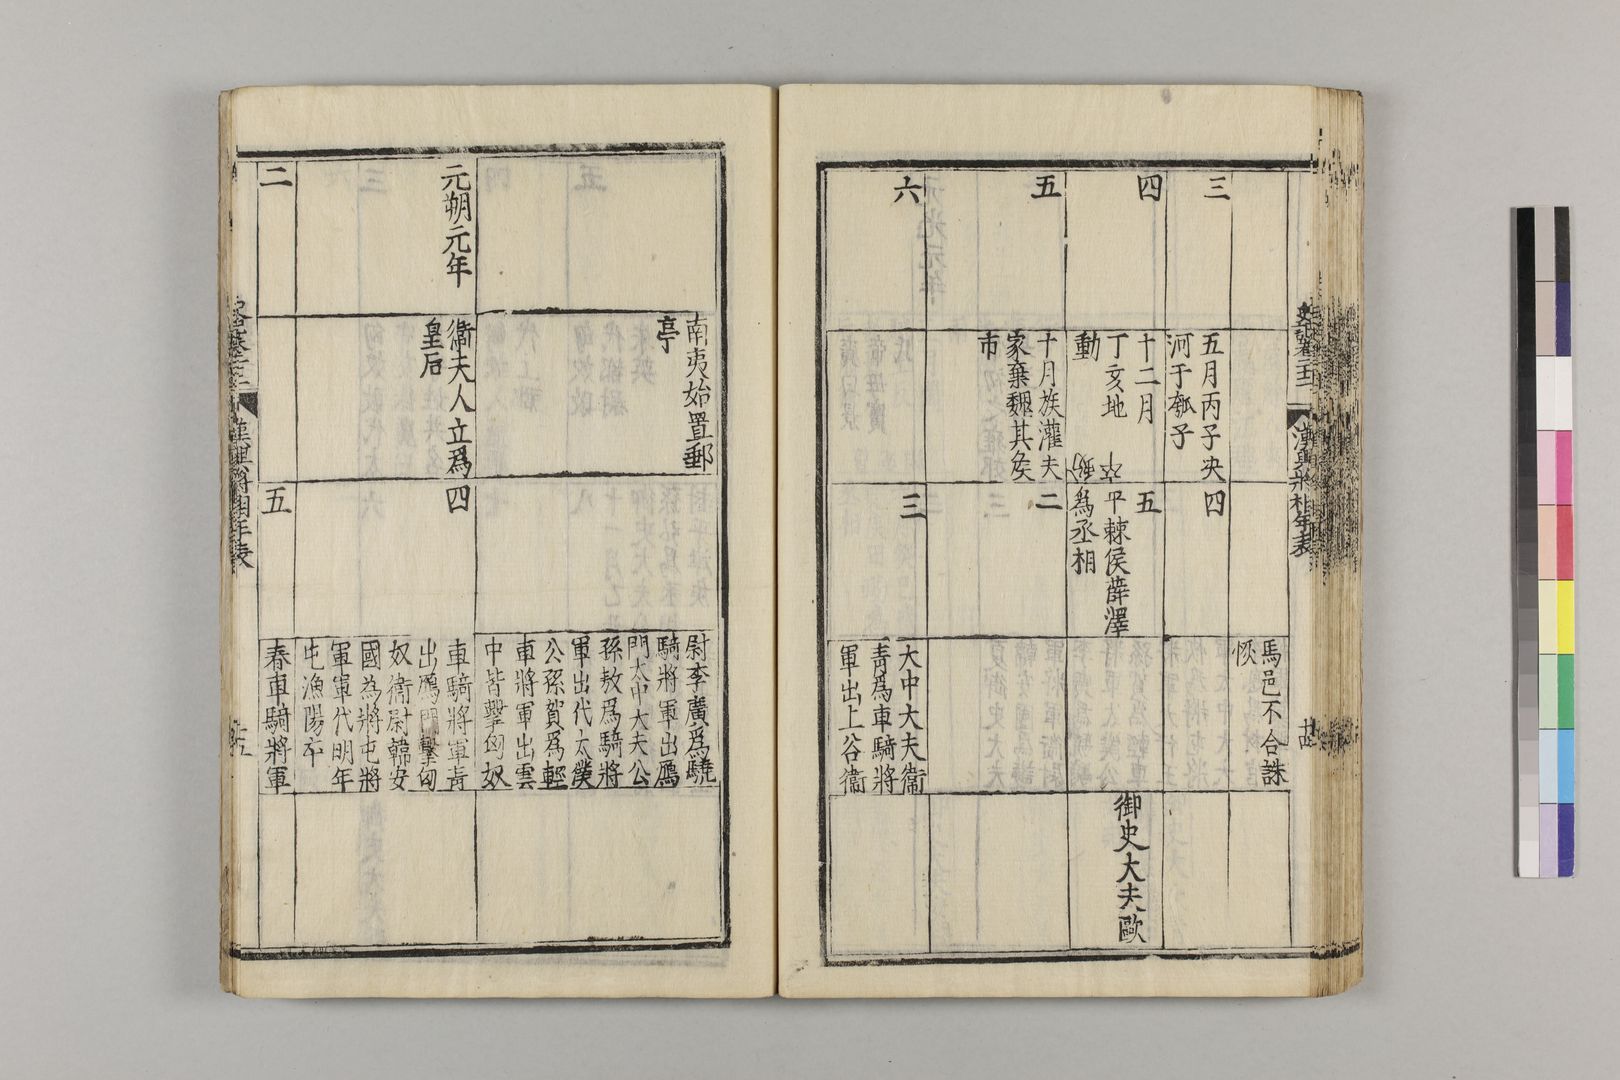 馬邑不合誅
恢
三
五月丙子决
河于瓠子
四
四
十二月
丁亥地
動
五
平棘侯薛澤
爲丞相
御史大夫歐
五
十月族灌夫
家棄魏其侯
市
二
六
三
大中大夫衞
青爲車騎將
軍出上谷衞
史記卷二十二
漢興將相年表
南夷始置郵
亭
尉李廣爲驍
騎將軍出鴈
門大中大夫公
孫敖爲騎將
軍出代太僕
公孫賀爲輕
車將軍出雲
中皆擊匈奴
元朔元年
衞夫人立爲
皇后
四
車騎將軍青
出鴈門擊匈
奴衞尉韓安
國為將屯將
軍軍代明年
屯漁陽卒
二
五
春車騎將軍